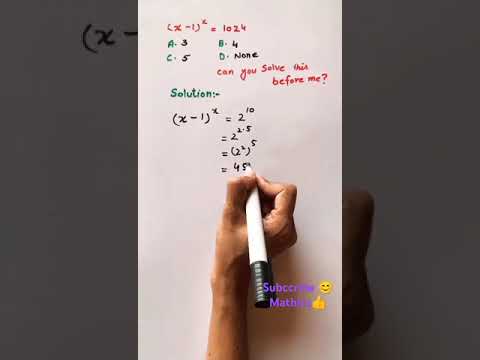 (x-1)ˣ = 1024
A. 3 B. 4
C. 5 D. None
can you solve this
before me?
Solution:-
(x-1)ˣ = 2¹⁰
= 2²·⁵
= (2²)⁵
= 4⁵
Subccribe 😊
Maths 👍